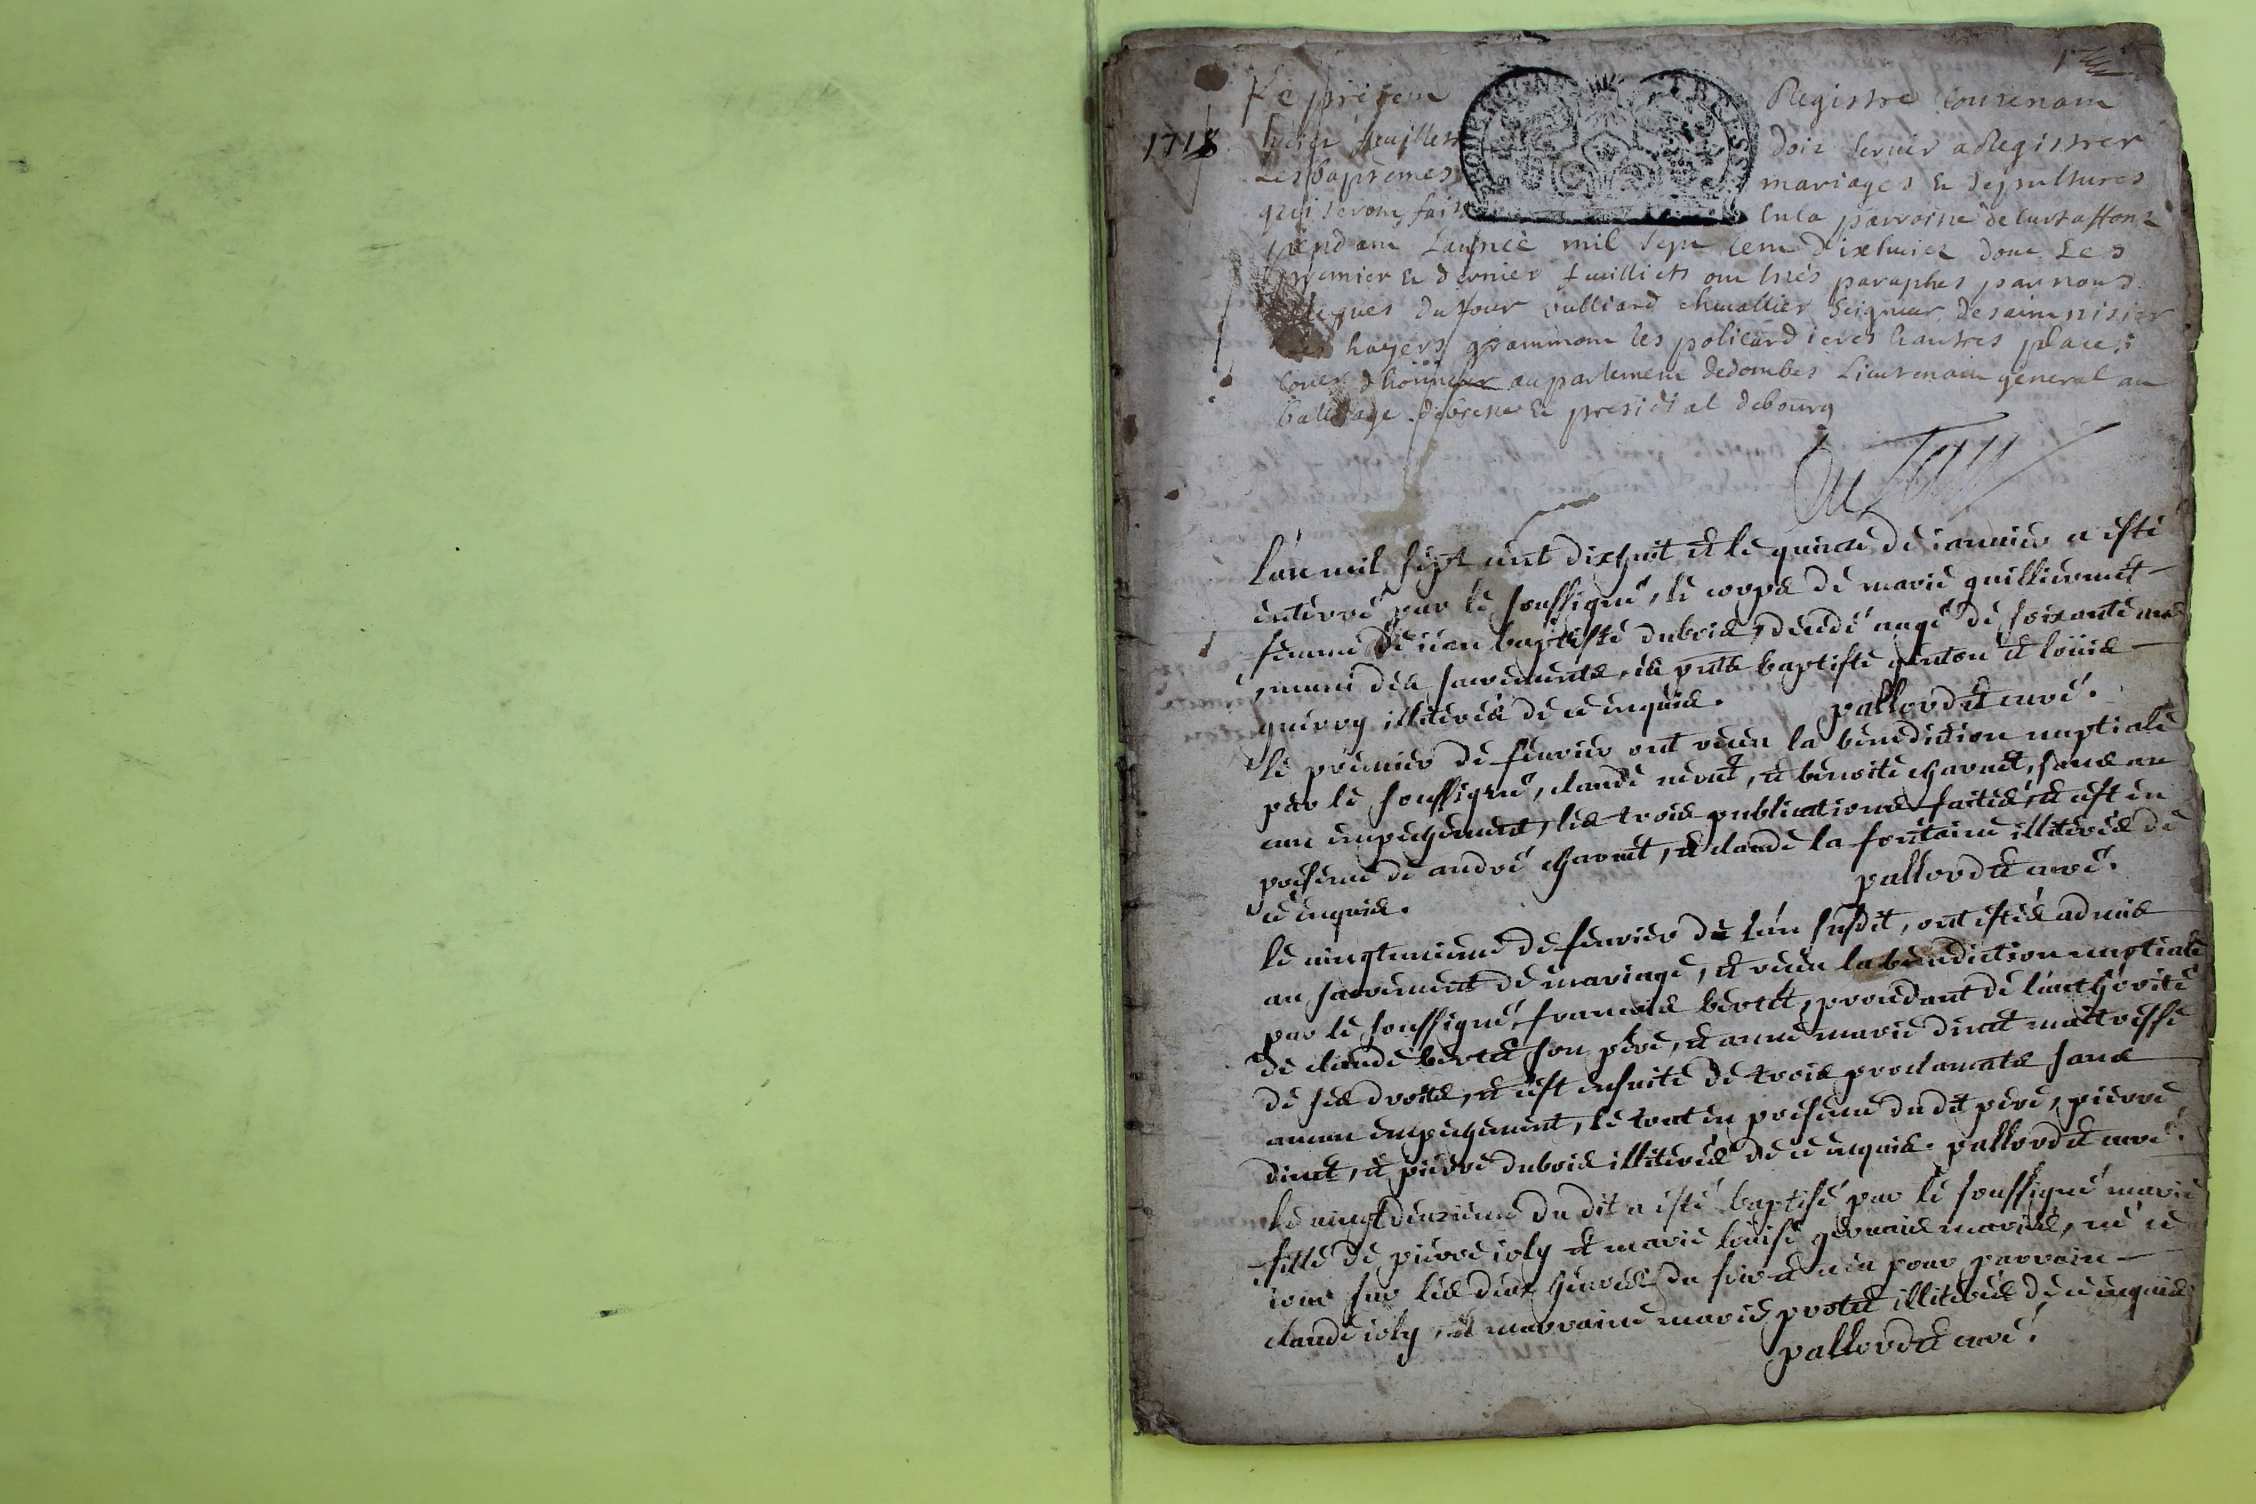 1er
Le present Registre Contenant
1718
huict feuillets doit servir a Registrer
Les baptemes mariages & sepultures
qui seront faits en la parroisse de Curtaffond
pendant Lannee mil sept cent dixhuict dont Les
premier & dernier feuillets ont estés paraphes par nous
Jacques Dufour vulliard chevallier Seigneur de saint nisier
les hayers grammont les policardieres & autres places
coner d'honneur au parlement de dombes Lieutenant general au
balliage de bresse & presidial de bourg
Du four
l'an mil sept cent dixhuit et le quinze de ianuier a esté
enterré par le soussigné, le corps de marie guillermet
femme de iean baptiste dubois, decedé aagé de soixante ans
, muni des sacrements, en pnce baptiste genton et loüis
guerry illiterés de ce enquis. pallordet curé.
le premier de feurier ont receu la benediction nuptiale
par le soussigné, claude neuet, et benoite charnet, sans au
cun empechement, les trois publications faites, et c'est en
presence de andré charnet, et claude la fontaine illiterés de
ce enquis. pallordet curé.
le vingtunieme de feurier de l'an susdit, ont estés admis
au sacrement de mariage, et receu la benediction nuptiale
par le soussigné francois bertet, procedant de l'authorité
de claude bertet son pere, et anne marie diuet maitresse
de ses droits, et c'est ensuite de trois proclamats sans
aucun empechement, le tout en presence du dit pere, pierre
diuet, et pierre dubois illiterés de ce enquis. pallordet curé.
le vingtdeuxieme du dit a esté baptisé par le soussigné marie
fille de pierre ioly et marie louise geruais mariés, né ce
iour sur les deux heures du soir et a eu pour parrain
claude ioly, et marraine marie protet illiterés de ce enquis
pallordet curé.